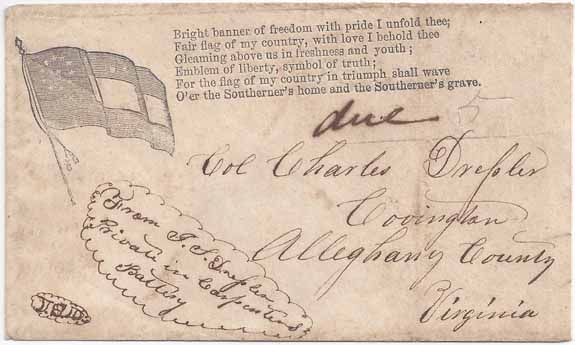 Bright banner of freedom with pride I unfold thee;
Fair flag of my country, with love I behold thee
Gleaming above us in freshness and youth;
Emblem of liberty, symbol of truth;
For the flag of my country in triumph shall wave
O'er the Southerner's home and the Southerner's grave.
due 5
Col Charles Dreſsler
Covington
Alleghany County
Virginia
From J. S. Dreſsler
Private in Carpenters
Battery